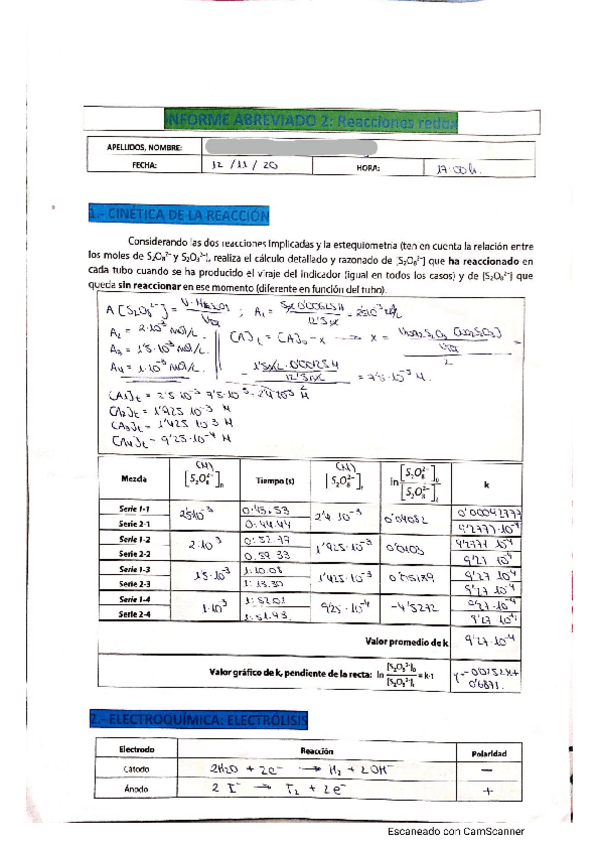 INFORME ABREVIADO 2: Reacciones redox
APELLIDOS, NOMBRE:
FECHA: 12/11/20 HORA: 17:00h.
1.- CINÉTICA DE LA REACCIÓN
Considerando las dos reacciones implicadas y la estequiometría (ten en cuenta la relación entre
los moles de S₂O₈²⁻ y S₂O₃²⁻), realiza el cálculo detallado y razonado de [S₂O₈²⁻] que ha reaccionado en
cada tubo cuando se ha producido el viraje del indicador (igual en todos los casos) y de [S₂O₈²⁻] que
queda sin reaccionar en ese momento (diferente en función del tubo).
A₂ = 2·10⁻³ mol/L.
A₃ = 1'5·10⁻³ mol/L.
A₄ = 1·10⁻³ mol/L.
[A]t = [A]₀ - x → x =
= 7'5·10⁻⁵ M.
[A2]t = 1'925 10⁻³ M
[A3]t = 1'425 10⁻³ M
[A4]t = 9'25·10⁻⁴ M
Mezcla [S₂O₈²⁻]₀ (M) Tiempo (s) [S₂O₈²⁻]t (M) ln [S₂O₈²⁻]₀/[S₂O₈²⁻]t k
Serie 1-1 2'5·10⁻³ 0:45.53 2'4 10⁻³ 0'04082 0'00042777
Serie 2-1 0:44.44 4'2777·10⁻⁴
Serie 1-2 2·10⁻³ 1'925·10⁻³ 4'2771 10⁻⁴
Serie 2-2 0.59 33 9'27 10⁻⁴
Serie 1-3 1'5·10⁻³ 1:10.08 1'425·10⁻³ 9'27 10⁻⁴
Serie 2-3 1:13.30 9'27 10⁻⁴
Serie 1-4 1·10⁻³ 1:52.01 9'25·10⁻⁴ -4'5272 9'27·10⁻⁴
Serie 2-4 1:51.43 9'27 10⁻⁴
Valor promedio de k 9'27·10⁻⁴
Valor gráfico de k, pendiente de la recta: ln [S₂O₈²⁻]₀/[S₂O₈²⁻]t = k·t
2.- ELECTROQUÍMICA: ELECTRÓLISIS
Electrodo Reacción Polaridad
Cátodo 2H₂O + 2e⁻ → H₂ + 2OH⁻ −
Ánodo 2 I⁻ → I₂ + 2e⁻ +
Escaneado con CamScanner